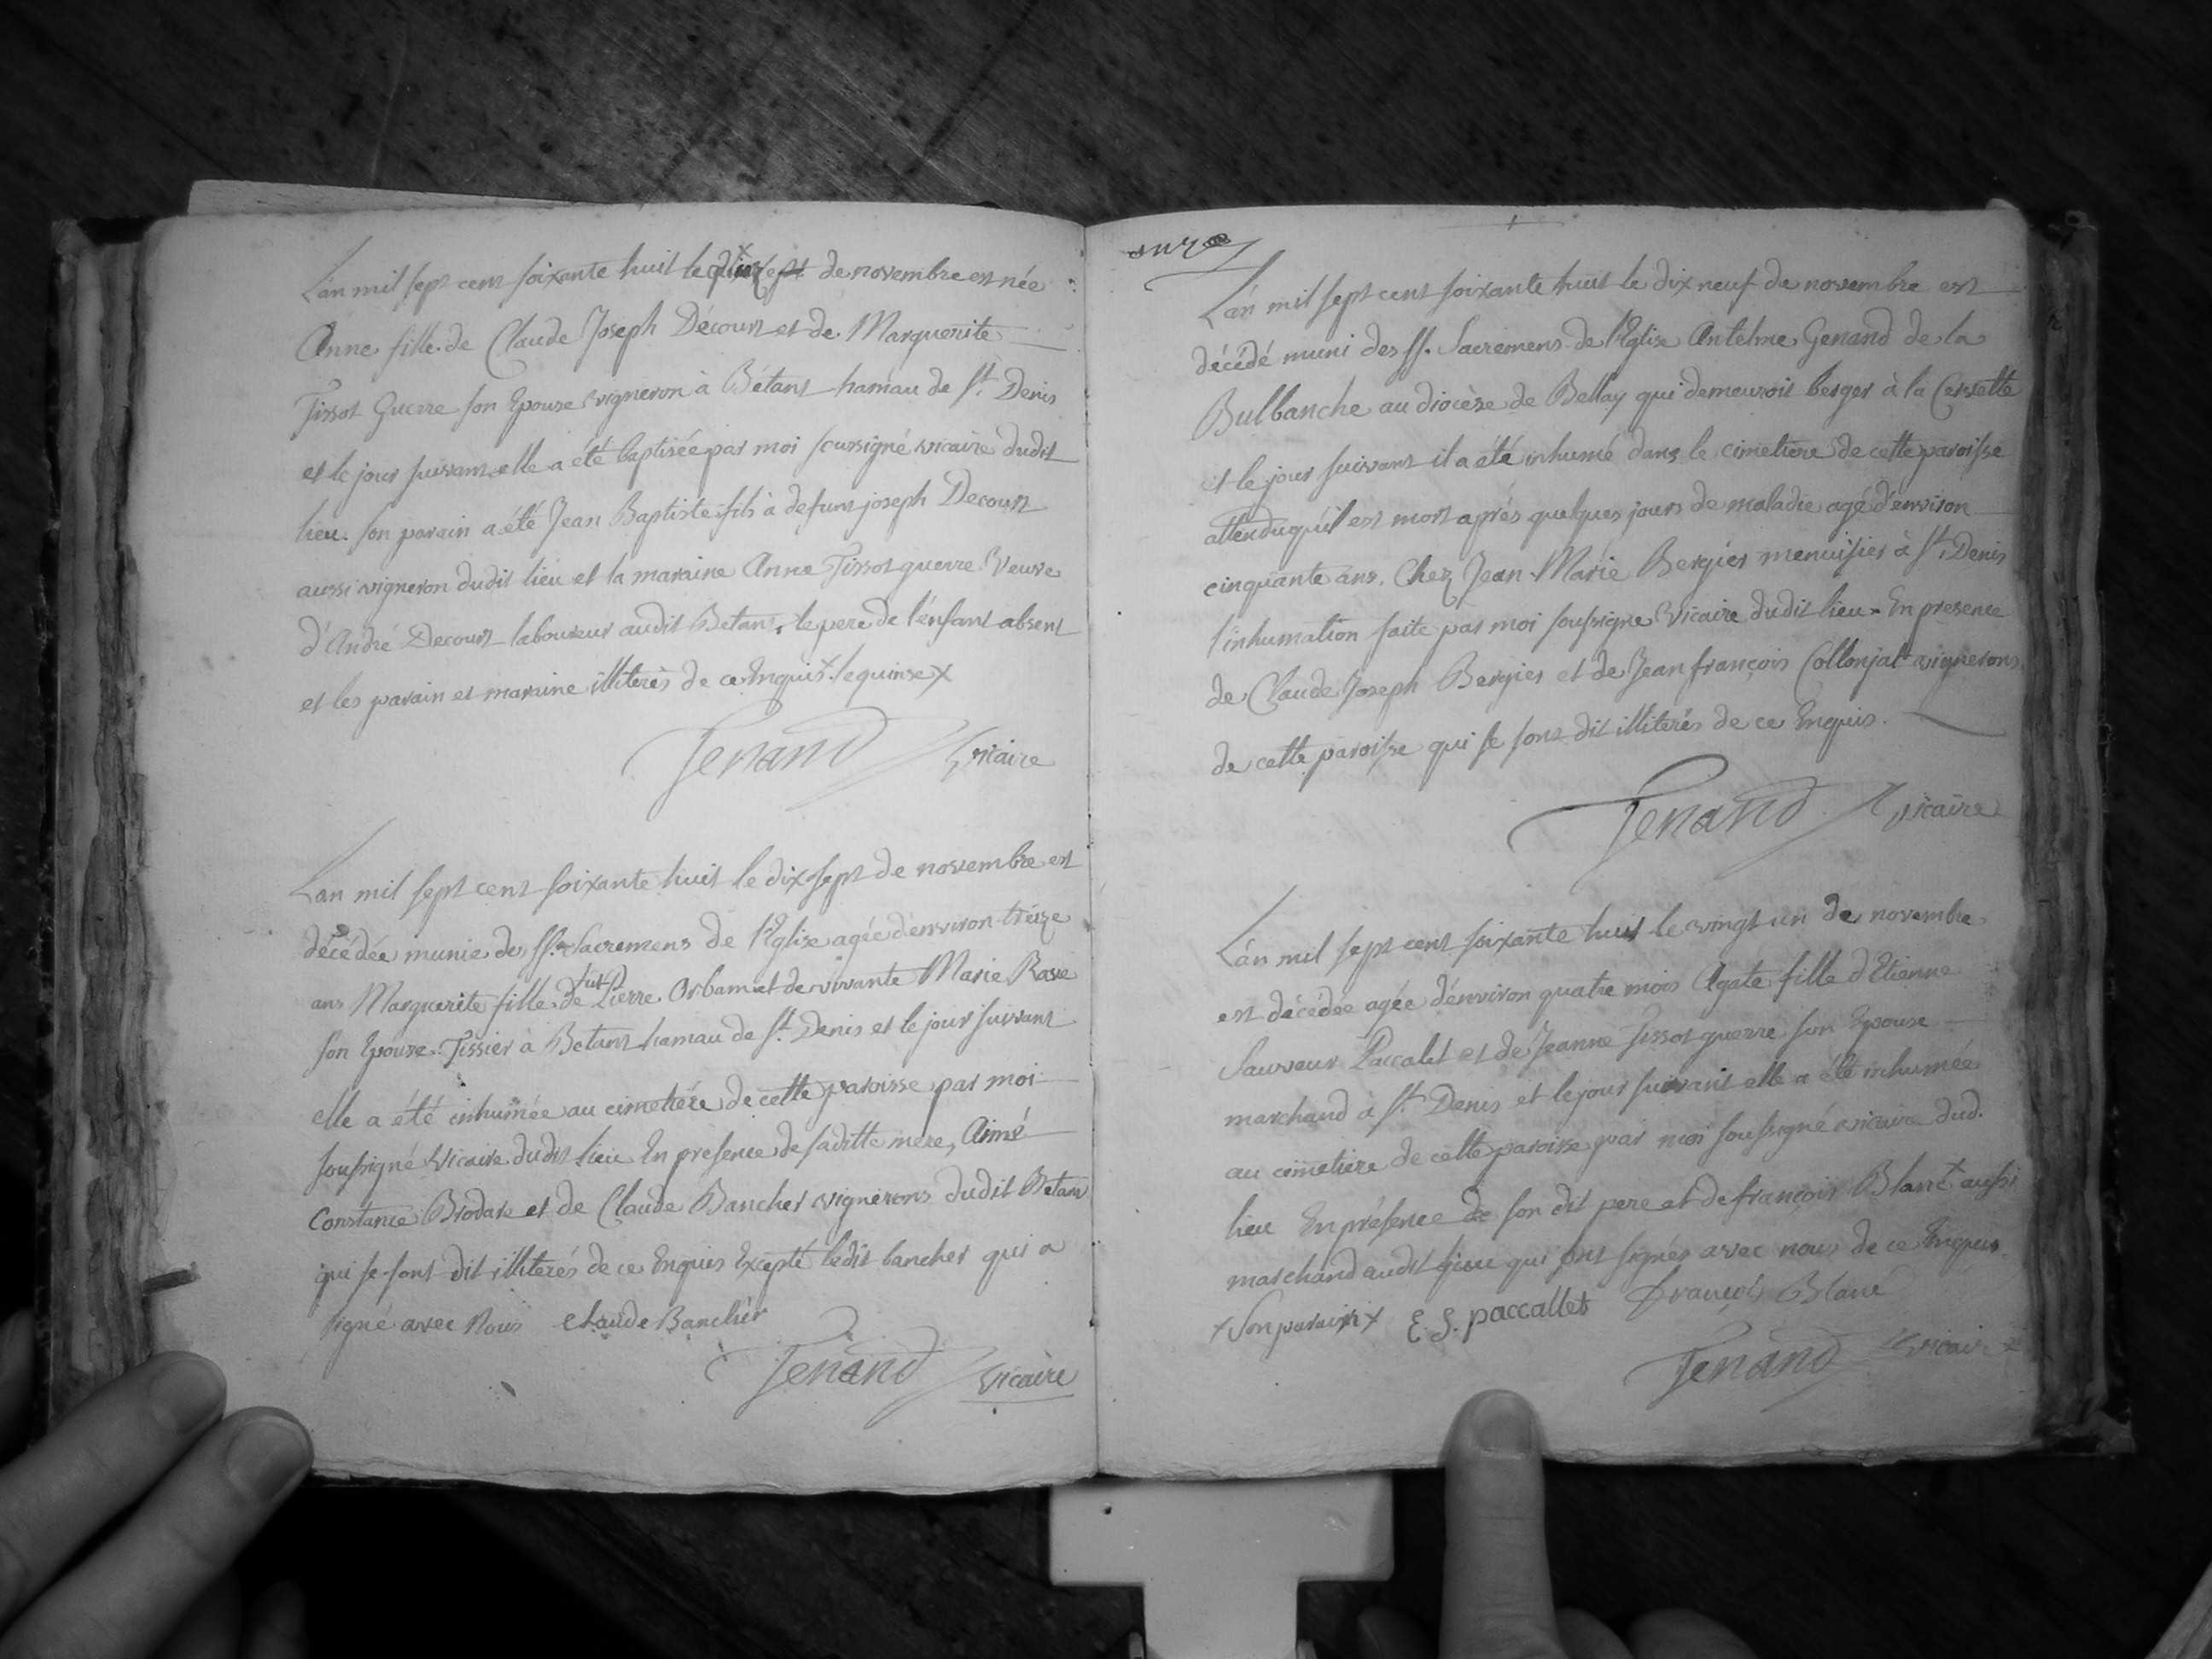 L'an mil sept cent soixante huit le de novembre est née
Anne fille de Claude Joseph Décourt et de Marguerite
Tissot Guerre son Epouse vigneron à Bétant hamau de St. Denis
et le jour suivant elle a été baptisée par moi soussigné vicaire dudit
lieu. son parain a été Jean Baptiste fils à defunt joseph Decourt
aussi vigneron dudit lieu et la maraine Anne Tissot guerre Veuve
d'André Decourt laboureur audit Betant, le pere de l'énfant absent
et les parain et maraine illiterés de ce Enquis x le quinse x
Jenand vicaire
L'an mil sept cent soixante huit le dix sept de novembre est
décédée munie des SS. Sacremens de l'Eglise agée d'environ treize
ans Marguerite fille de fut Pierre Orbamet de vivante Marie Rave
son Epouse. Tissier à Betant hamau de St. Denis et le jour suivant
elle a été inhumée au cimetiére de cette paroisse par moi
soussigné Vicaire dudit lieu En présence de saditte mere, Aimé
Constance Brodare et de Claude Bancher vignerons dudit Betan
qui se sont dit illiterés de ce Enquis Excepté ledit bancher qui a
signé avec Nous Claude Banchér
Jenand vicaire
L'an mil sept cent soixante huit le dix neuf de novembre est
décédé muni des SS. Sacremens de l'Eglise Antelme Genand de la
Bulbanche au diocèse de Bellay qui demeuroit berger à la Cervette
et le jour suivant il a été inhumé dans le cimetiere de cette paroisse
attendu qu'il est mort aprés quelques jours de maladie agé d'énviron
cinquante ans. Chez Jean Marie Bergier menuisier à St. Denis
l'inhumation faite par moi soussigné Vicaire dudit lieu En presence
de Claude Joseph Bergier et de Jean françois Collonjat vignerons
de cette paroisse qui se sont dit illiterés de ce Enquis.
Jenand vicaire
L'an mil sept cent soixante huit le vingt un de novembre
est décédée agée d'énviron quatre mois Agate fille d'Etienne
Sauveur Paccalet et de Jeanne Tissot guerre son Epouse
marchand à St. Denis et le jour suivant elle a été inhumée
au cimetiere de cette paroisse par moi soussigné vicaire dud.
lieu En présence de son dit pere et de françois Blanc x aussi
marchand audit lieu qui ont signés avec nous de ce Enquis.
x Son parain x E. S. paccallet François Blanc
Jenand vicaire